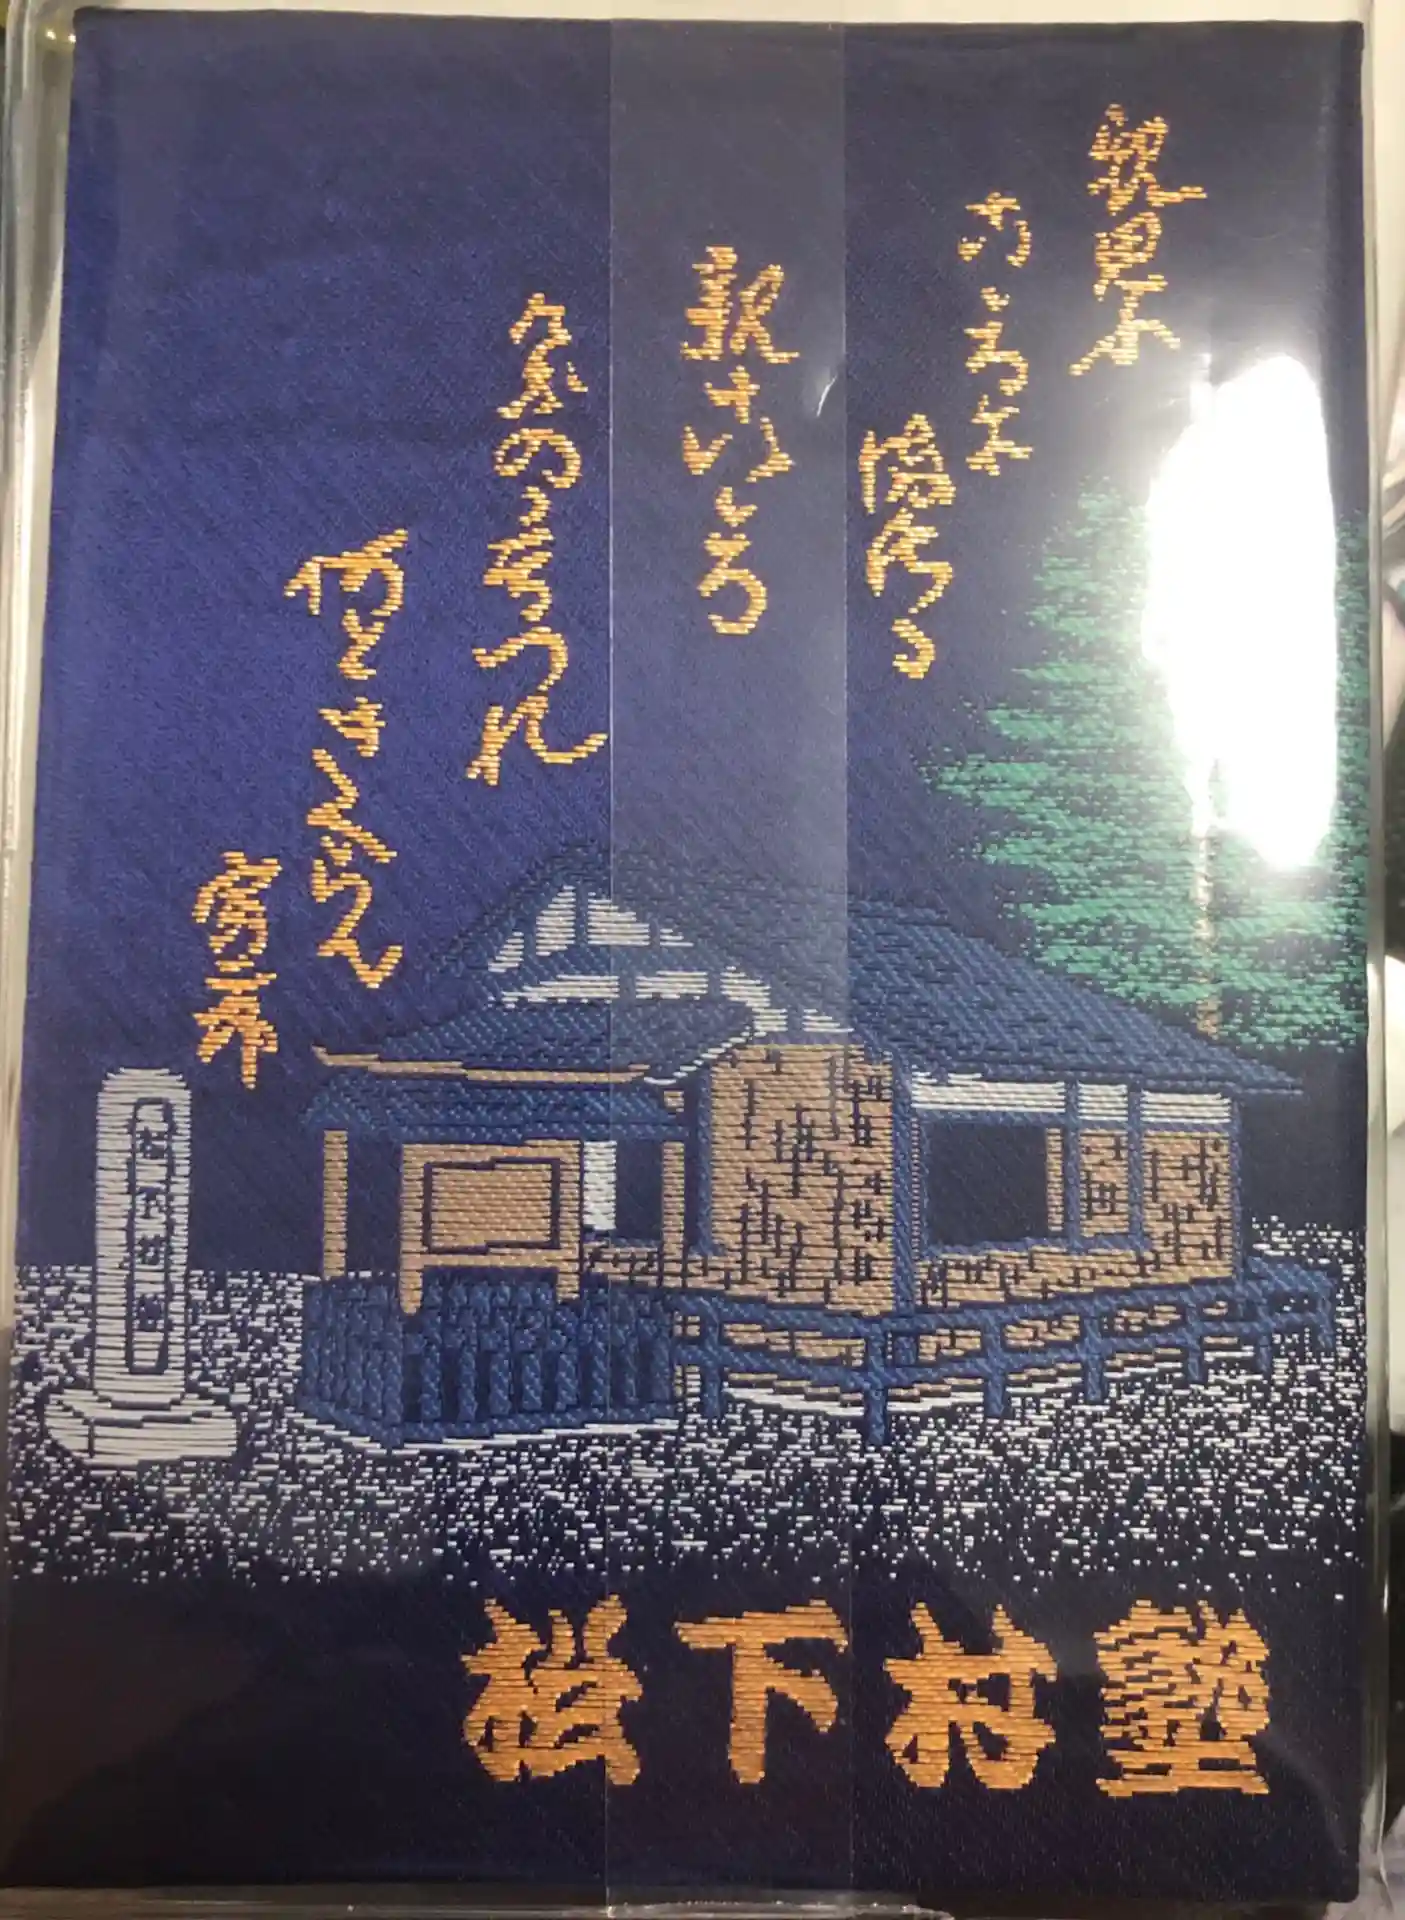 親思ふ
こゝろに
まさる
親こゝろ
けふの音つれ
何ときくらん
松下村塾
松下村塾